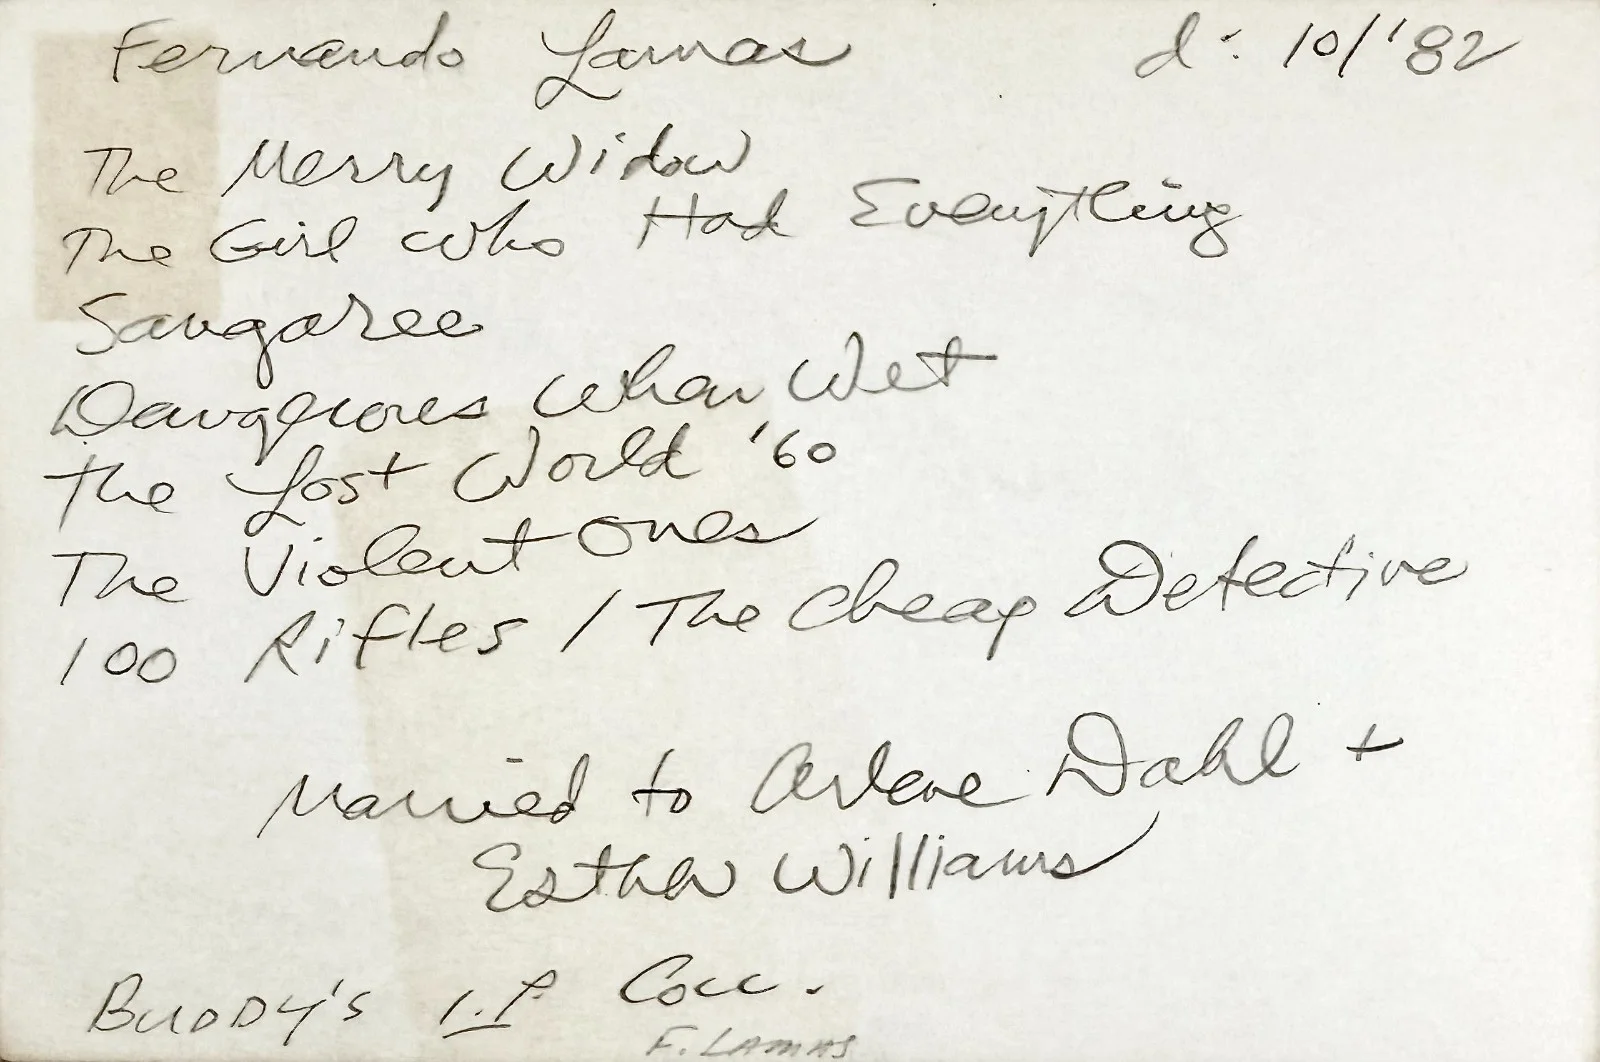 Fernando Lamas d: 10/'82
The Merry Widow
The Girl who Had Everything
Sangaree
Dangerous When Wet
The Lost World '60
The Violent Ones
100 Rifles / The Cheap Detective
Married to Arlene Dahl +
Esther Williams
BUDDY'S I.P. Coll.
F. LAMAS